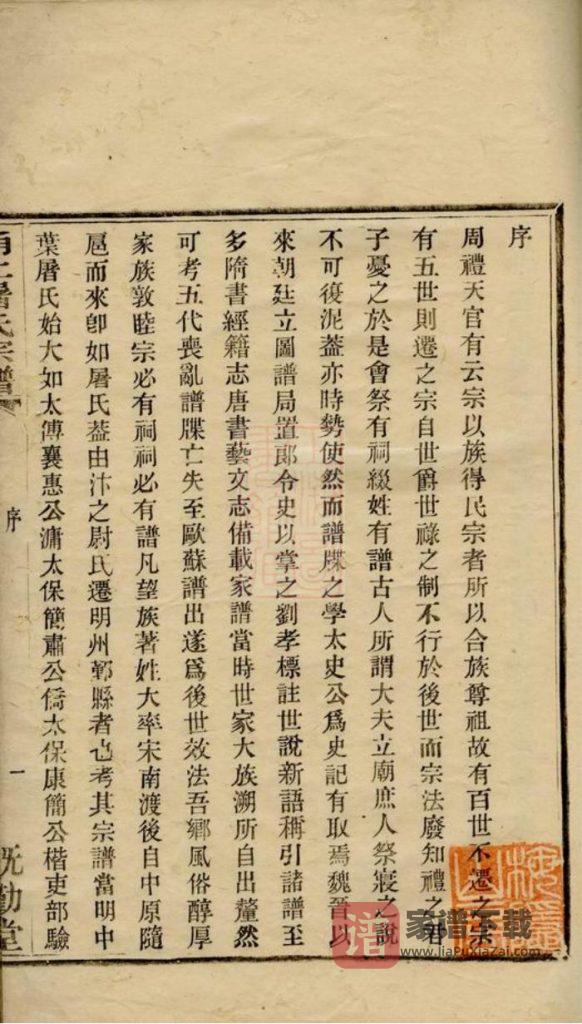 序
周禮天官有云宗以族得民宗者所以合族尊祖故有百世不遷之宗
有五世則遷之宗自世爵世祿之制不行於後世而宗法廢知禮之君
子憂之於是會祭有祠綴姓有譜古人所謂大夫立廟庶人祭寢之說
不可復泥蓋亦時勢使然而譜牒之學太史公爲史記有取焉魏晉以
來朝廷立圖譜局置郎令史以掌之劉孝標註世說新語稱引諸譜至
多隋書經籍志唐書藝文志備載家譜當時世家大族溯所自出釐然
可考五代喪亂譜牒亡失至歐蘇譜出遂爲後世效法吾鄉風俗醇厚
家族敦睦宗必有祠祠必有譜凡望族著姓大率宋南渡後自中原隨
扈而來卽如屠氏蓋由汴之尉氏遷明州鄞縣者也考其宗譜當明中
葉屠氏始大如太傅襄惠公滽太保簡肅公僑太保康簡公楷吏部驗
甬上屠氏宗譜
序
一
旣勤堂
譜
家谱下载
www.jiaPuXiaZai.com